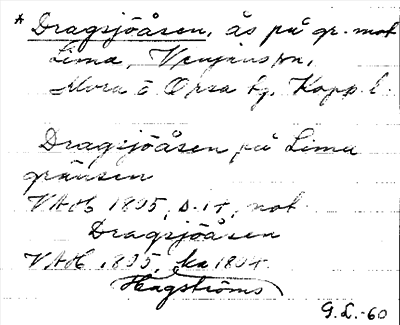 * Dragsjöåsen, ås på gr. mot
Lima, Venjans sn,
Mora o Orsa tg, Kopp. l.
Dragsjöåsen på Lima
gränsen
1805, not
Dragsjöåsen
ka 1804.
Hagströms
G.L.-60